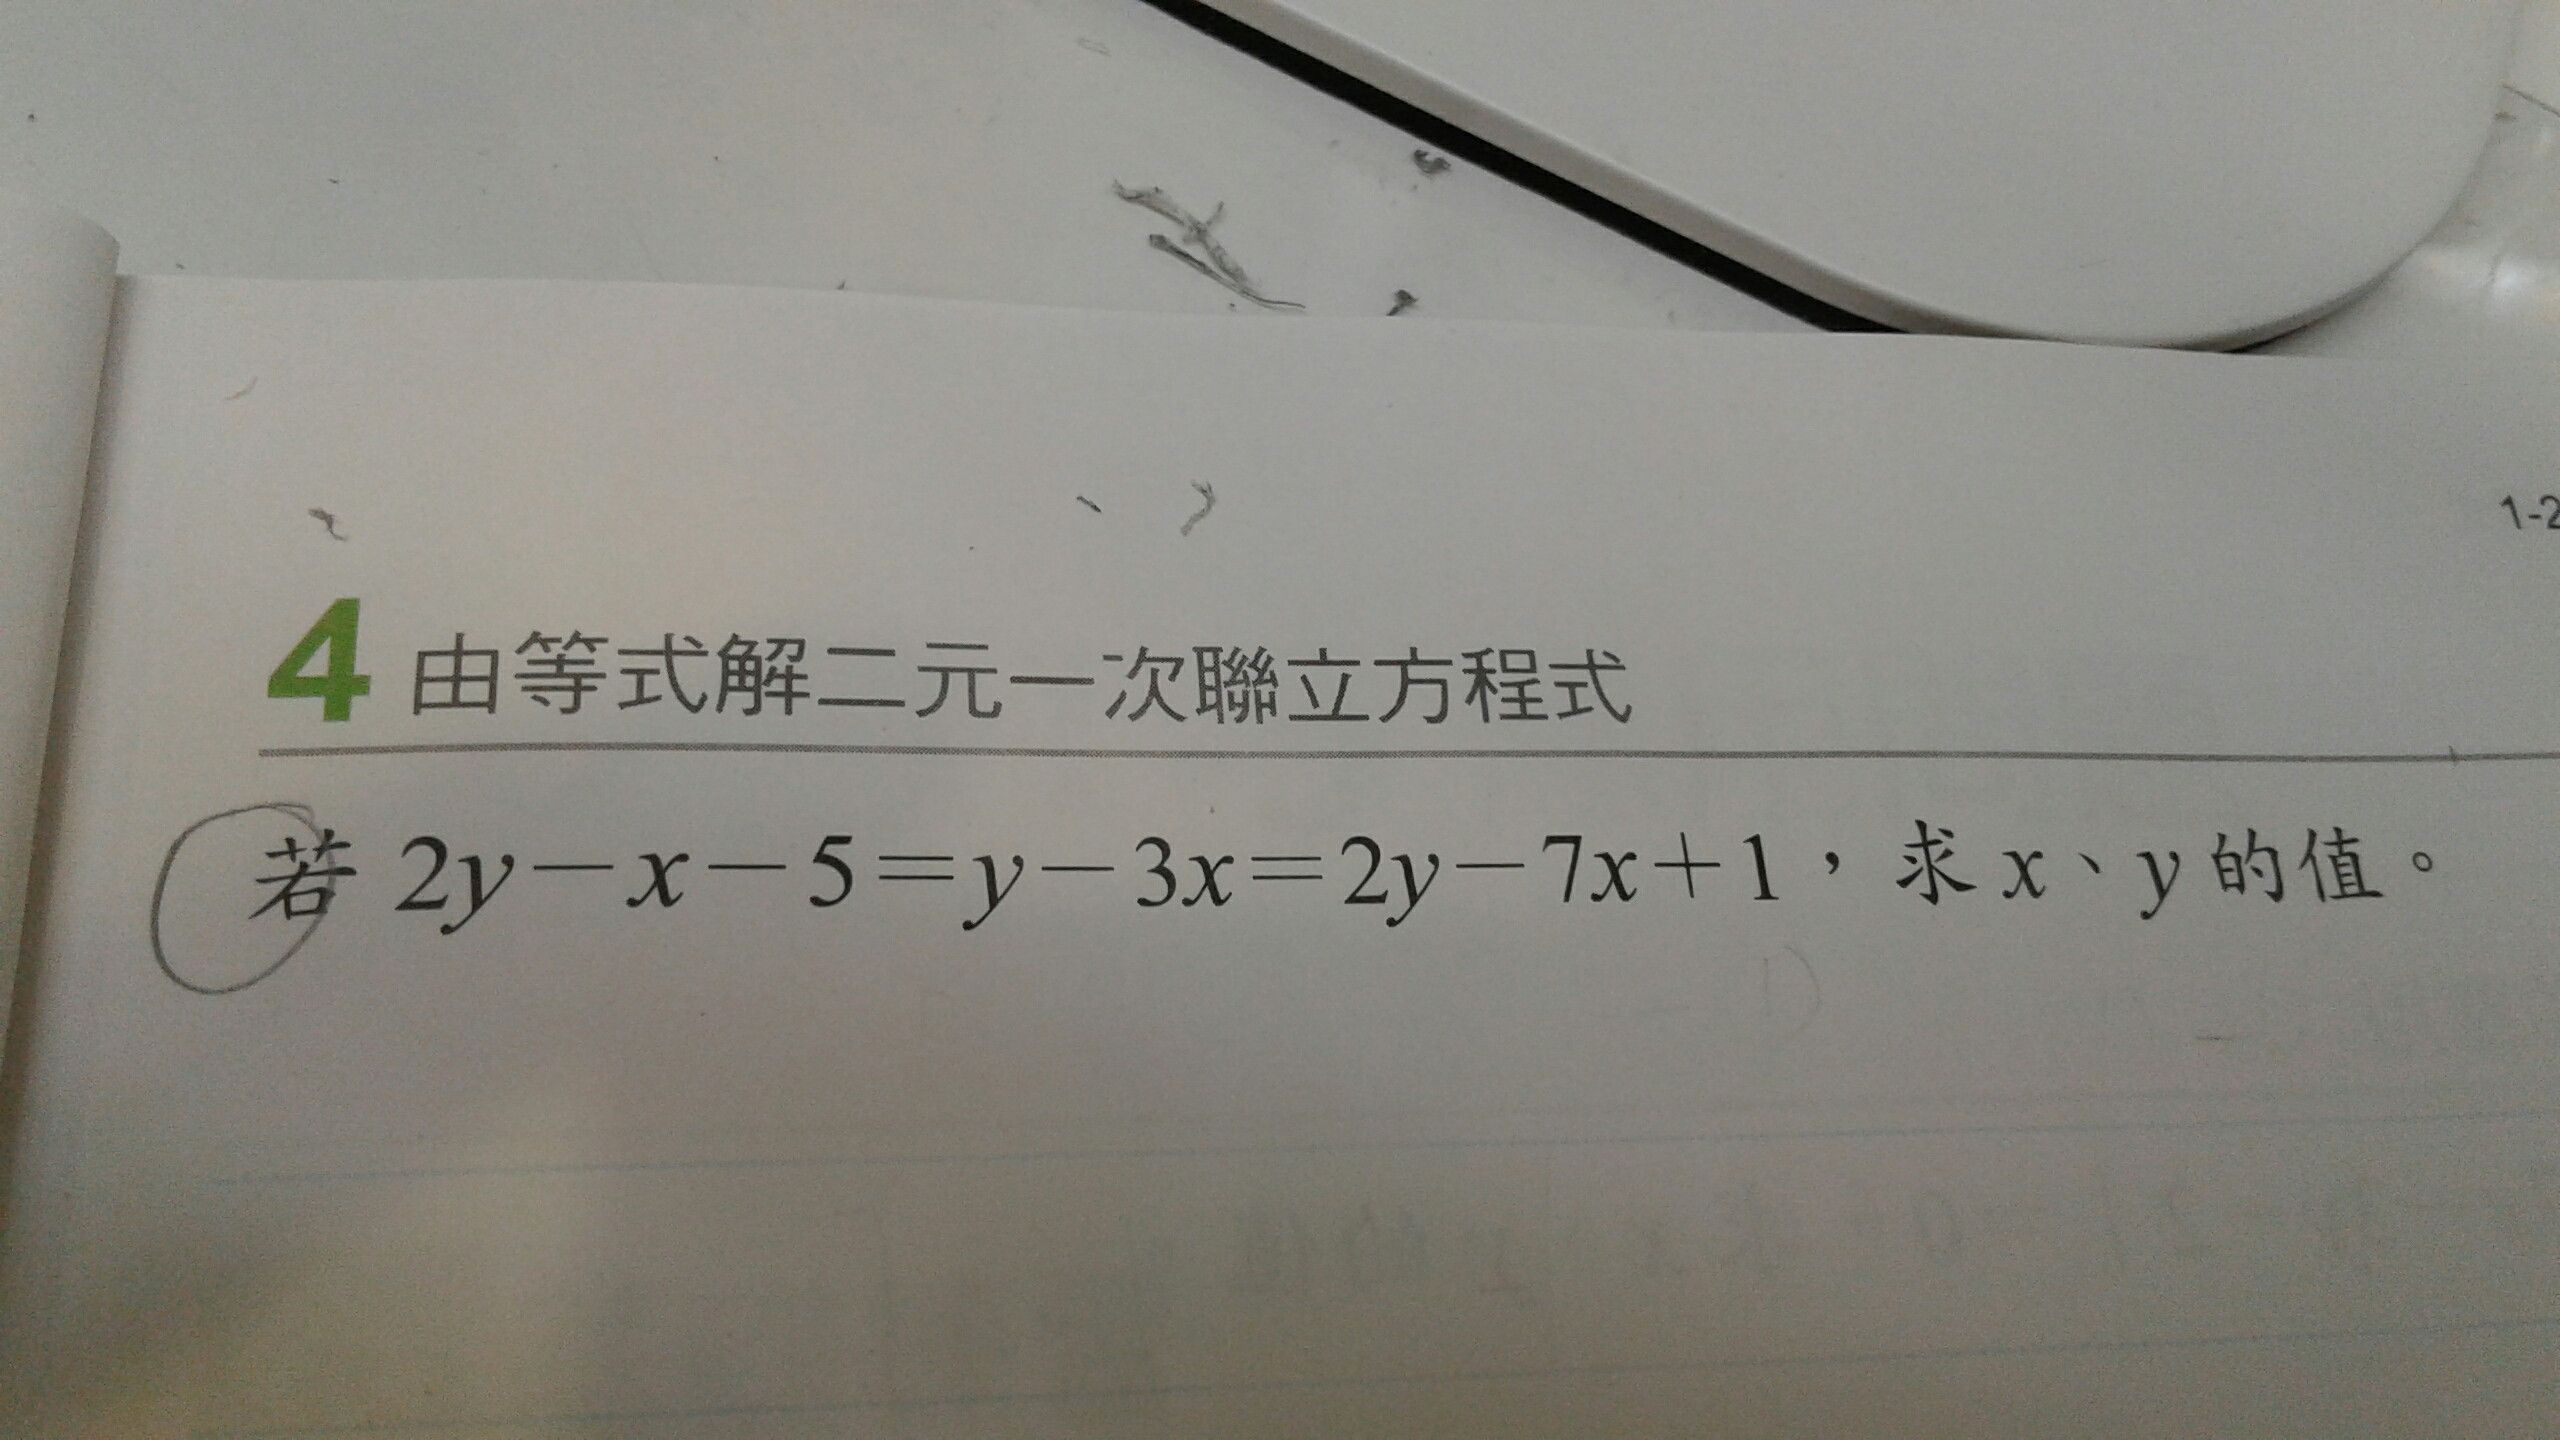 1-2
4 由等式解二元一次聯立方程式
若 2y－x－5＝y－3x＝2y－7x＋1，求 x、y 的值。